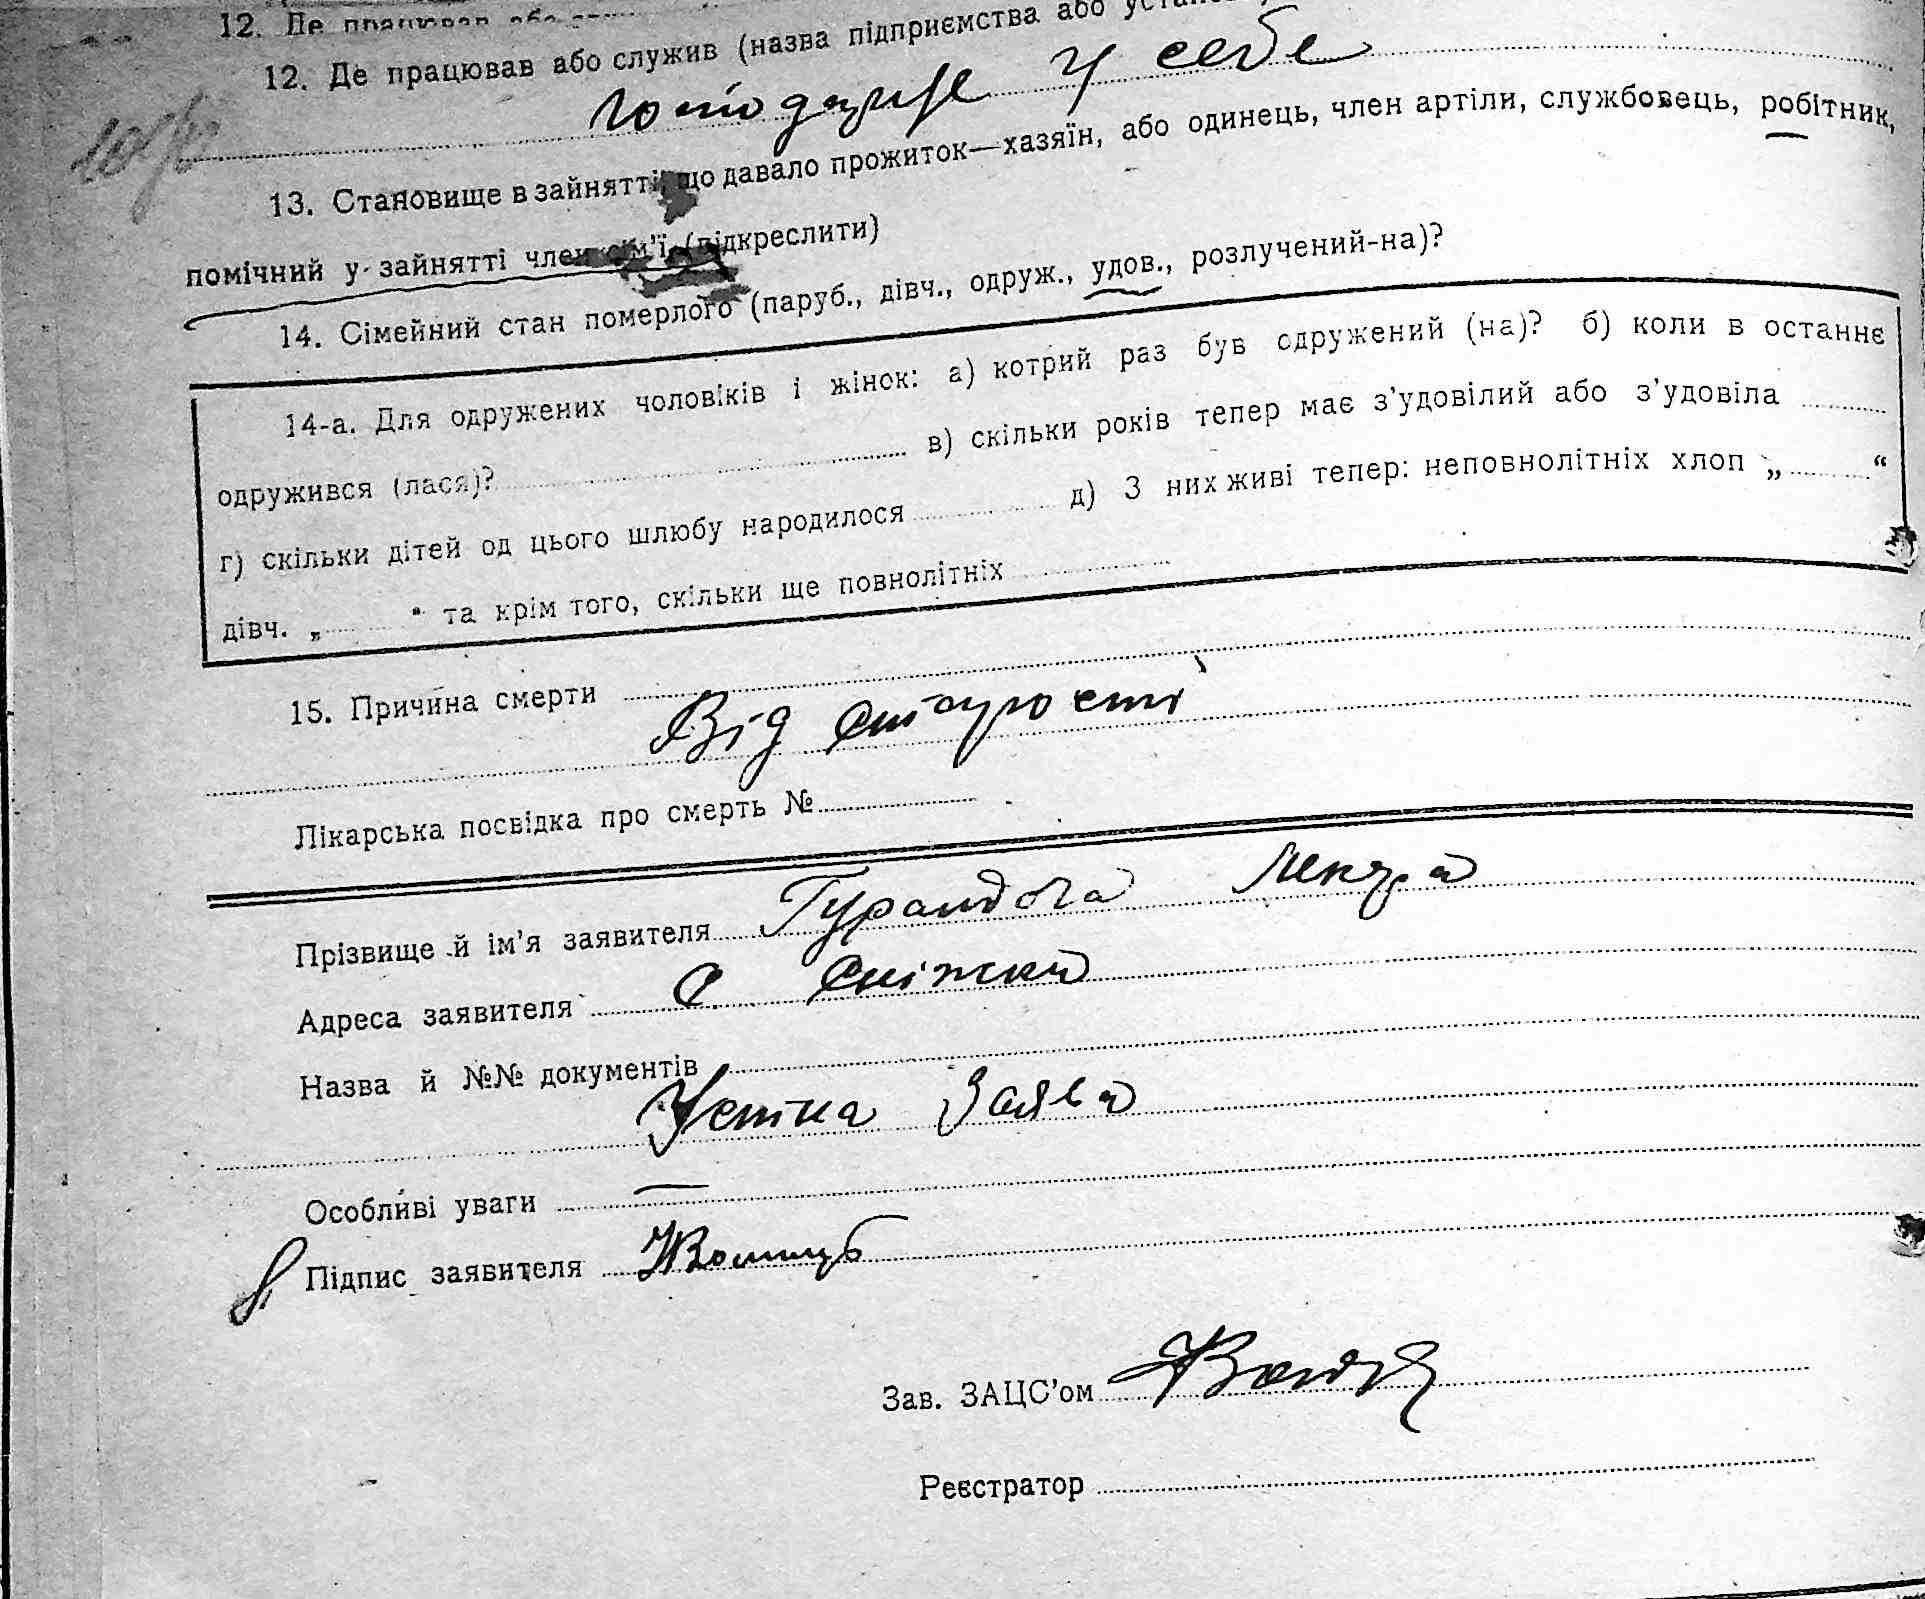 12. Де працював або
12. Де працював або служив (назва підприємства або
у себе
13. Становище в зайнятті, що давало прожиток—хазяїн, або одинець, член артіли, службовець, робітник,
помічний у зайнятті член сім'ї (підкреслити)
14. Сімейний стан померлого (паруб., дівч., одруж., удов., розлучений-на)?
14-а. Для одружених чоловіків і жінок: а) котрий раз був одружений (на)? б) коли в останнє
одружився (лася)? в) скільки років тепер має з'удовілий або з'удовіла
г) скільки дітей од цього шлюбу народилося д) З них живі тепер: неповнолітніх хлоп „ “
дівч. „ “ та крім того, скільки ще повнолітніх
15. Причина смерти
Від старости
Лікарська посвідка про смерть №
Прізвище й ім'я заявителя
Адреса заявителя с Сніжки
Назва й №№ документів
Устна Заява
Особливі уваги —
Підпис заявителя
Зав. ЗАЦС'ом
Реєстратор